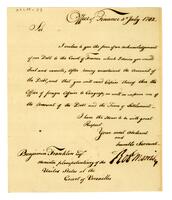 Office of Finance 5th July 1782.
Sir
I enclose to you the form of an acknowledgement
of our Debt to the Court of France which I desire you may
and execute, after having ascertained the Amount of
the Debt, and that you will send Copies through
the Office of foreign Affairs to Congress, as well to inform us
of the Amount of the Debt and the Terms of Settlement.
I have the Honor to be with great
Respect
Your most obedient
and humble Servant
Robt Morris
Benjamin Franklin Esqr
minister plenipotentiary of the
United States at the
Court of Versailles